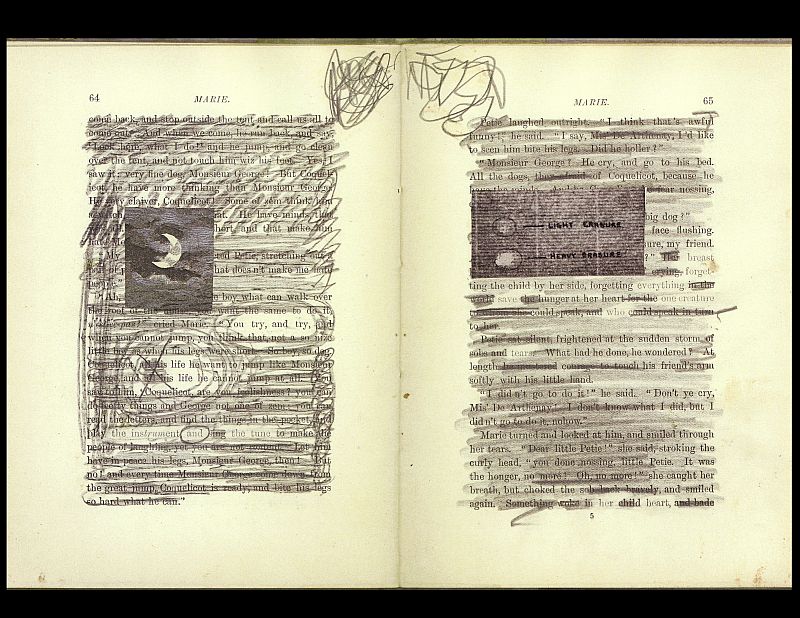 64
MARIE.
come back, and stop outside the tent and call us all to
come out. And when we come, he run back, and say,
'Look here, what I do!' and he jump, and go clean
over the tent, and not touch him wiz his foot. Yes! I
saw it: very fine dog, Monsieur George! But Coquelicot,
he have more thinking then Monsieur George.
He very claiver, Coquelicot! Some of zem think him
a witch, that. He have minds, that
short, and that make him
"My ted Petie, stretching out a
pair of hat doesn't make me
"Ah, boy, what can walk over
the roof of the you want the same to do it,
cried Marie. "You try, and try, and
when you cannot jump, you think that not a so nice
little boy as when his legs were short. So boy, so dog.
Coquelicot, all his life he want to jump like Monsieur
George, and all his life he cannot jump at all. You
say to him, 'Coquelicot, are you foolishness? you can
do forty things and George not one of zem: you can
read the letters, and find the things in the pocket, and
play the instrument, and sing the tune to make the
people of laughing, yet you are not Let him
have in peace his legs, Monsieur George, then!' But
no! and every time Monsieur George come down from
the great jump, Coquelicot is ready, and bite his legs
so hard what he can."
MARIE.
65
Petie laughed outright. "I think that's awful
funny!" he said. "I say, Mis' De Arthenay, I'd like
to seen him bite his legs. Did he holler?"
"Monsieur George? He cry, and go to his bed.
All the dogs, they afraid of Coquelicot, because he
have the minds. And he, Coquelicot, he fear nossing,
big dog?"
face flushing.
sure, my friend.
?" Her breast
crying, forget-
LIGHT ERASURE
HEAVY ERASURE
ting the child by her side, forgetting everything in the
world save the hunger at her heart for the one creature
to whom she could speak, and who could speak in turn
to her.
Petie sat silent, frightened at the sudden storm of
sobs and tears. What had he done, he wondered? At
length he mustered courage to touch his friend's arm
softly with his little hand.
"I didn't go to do it!" he said. "Don't ye cry,
Mis' De Arthenay! I don't know what I did, but I
didn't go to do it, nohow."
Marie turned and looked at him, and smiled through
her tears. "Dear little Petie!" she said, stroking the
curly head, "you done nossing, little Petie. It was
the honger, no more! Oh, no more!" she caught her
breath, but choked the sob back bravely, and smiled
again. Something woke in her child heart, and bade
5